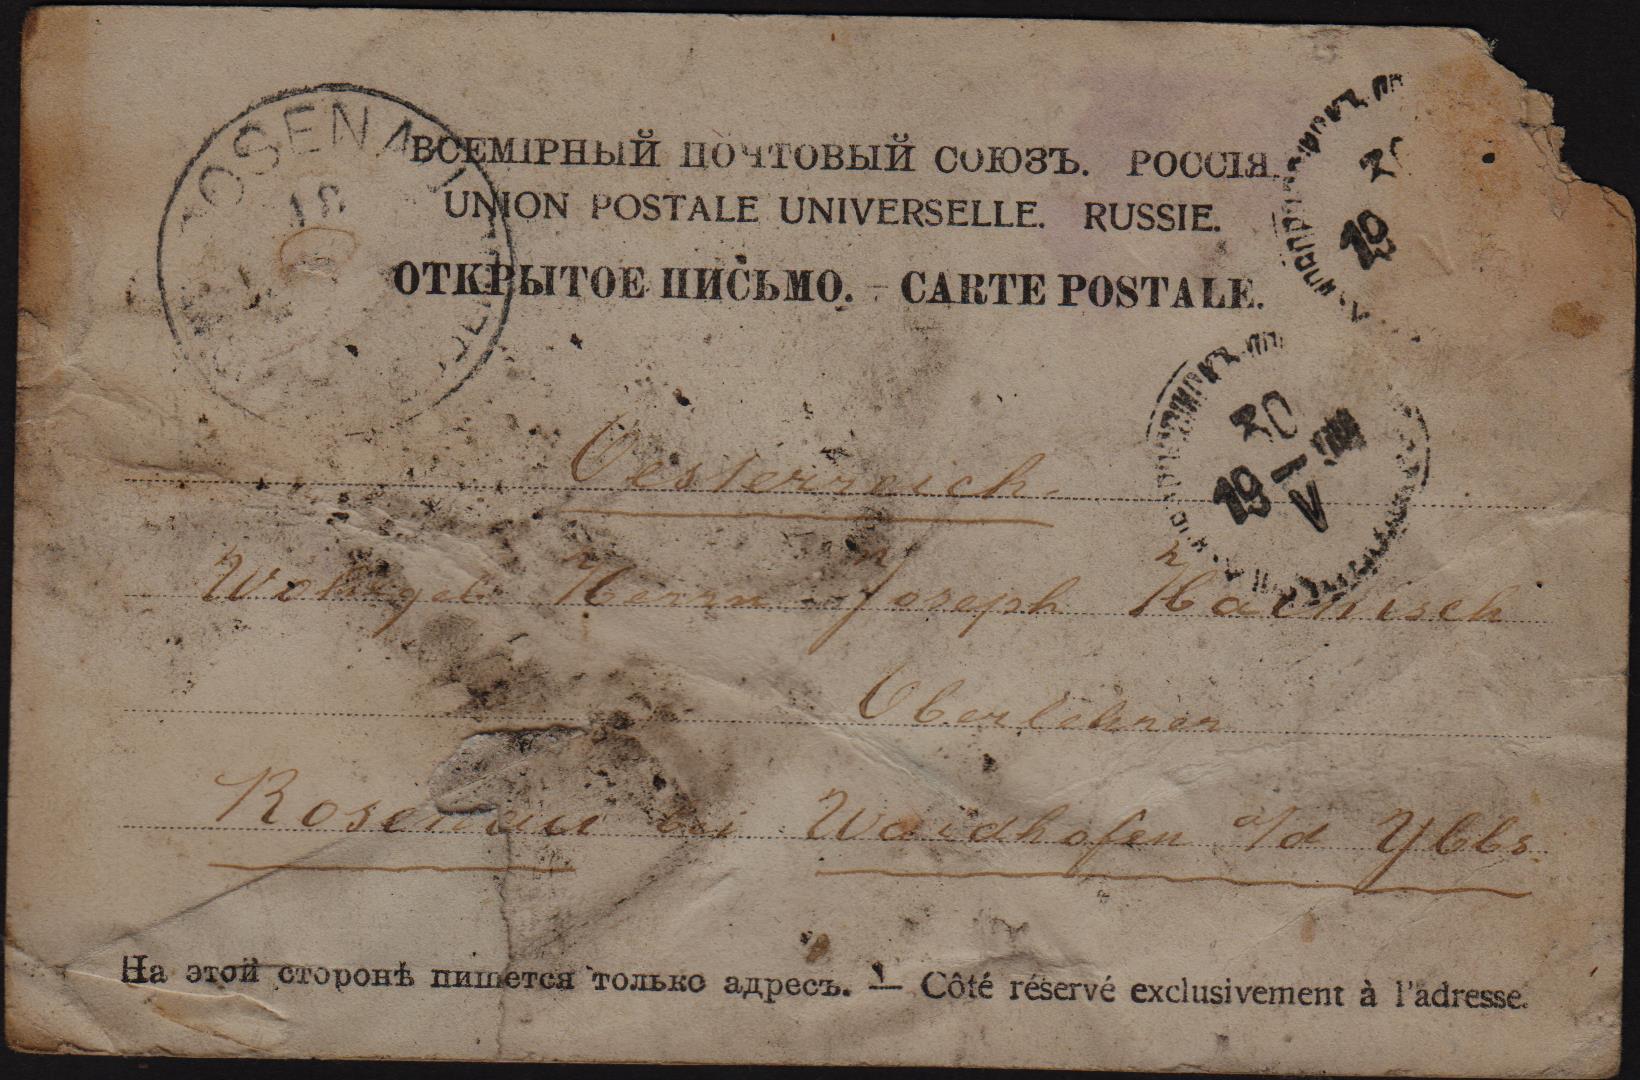 ROSENAU
18
ВСЕМІРНЫЙ ПОЧТОВЫЙ СОЮЗЪ. РОССІЯ.
UNION POSTALE UNIVERSELLE. RUSSIE.
ОТКРЫТОЕ ПИСЬМО. - CARTE POSTALE.
30
19
30
19 V
Oesterreich.
Wohlgeb Herrn Joseph Haenisch
Oberlehrer
Rosenau bei Waidhofen a/d Ybbs.
На этой сторонѣ пишется только адресъ. — Côté réservé exclusivement à l'adresse.